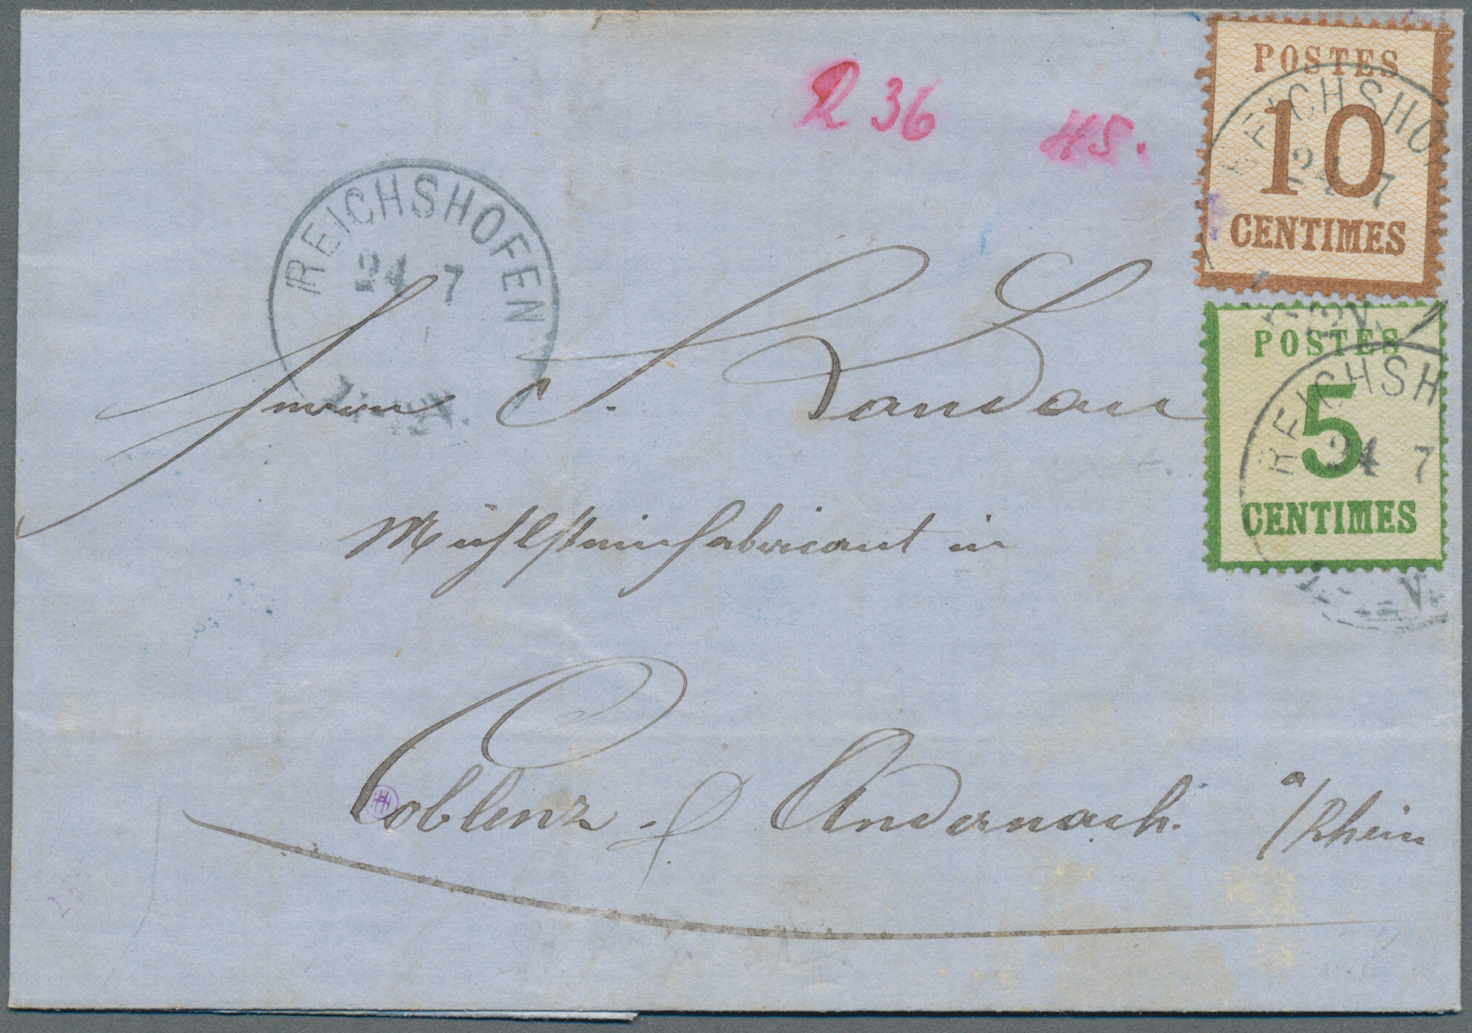 R 36 45.
POSTES
REICHSHO
10
24 7
CENTIMES
REICHSHOFEN
24 7
POSTES
REICHSH
5
24 7
CENTIMES
V.
Herrn S. Landau
Mühlsteinfabricant in
Coblenz & Andernach
a/Rhein